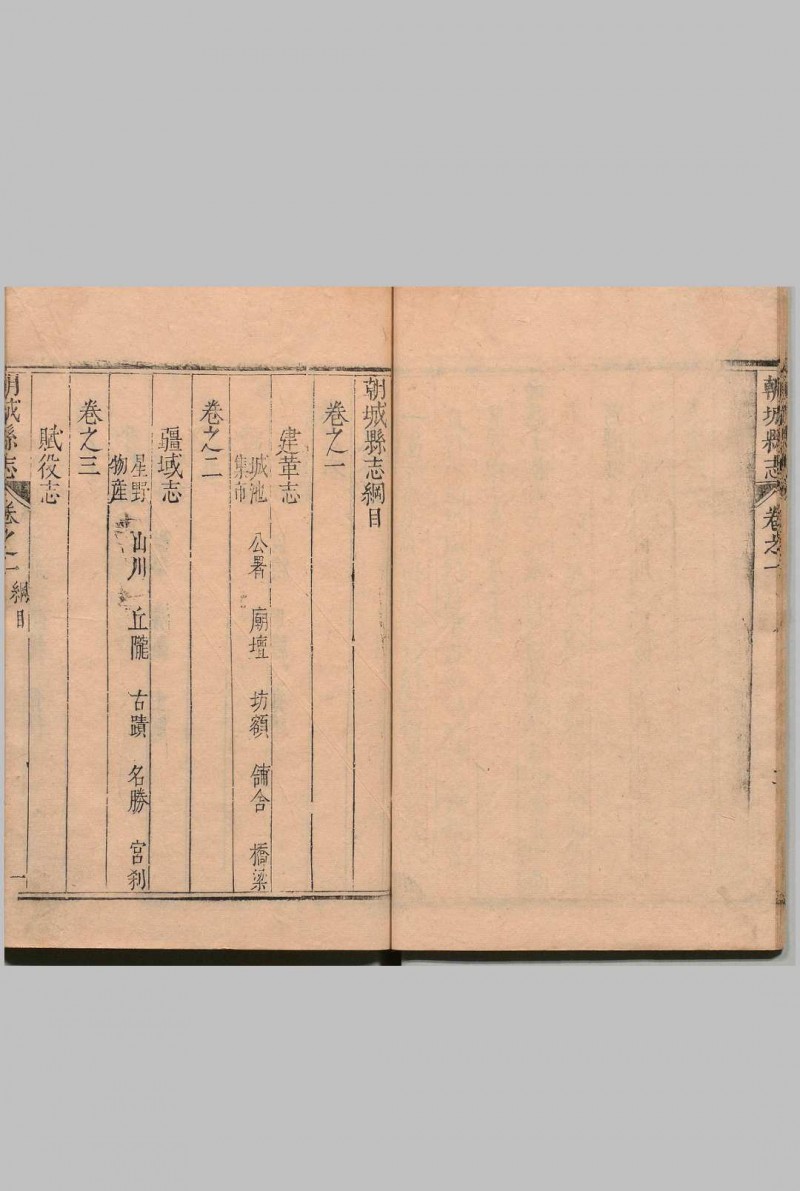 朝城縣志 卷之一
朝城縣志綱目
卷之一
建革志
城池 公署 廟壇 坊額 舖舍 橋梁
集市
卷之二
疆域志
星野 山川 丘隴 古蹟 名勝 宮刹
物産
卷之三
賦役志
朝城縣志 卷之一 綱目 一